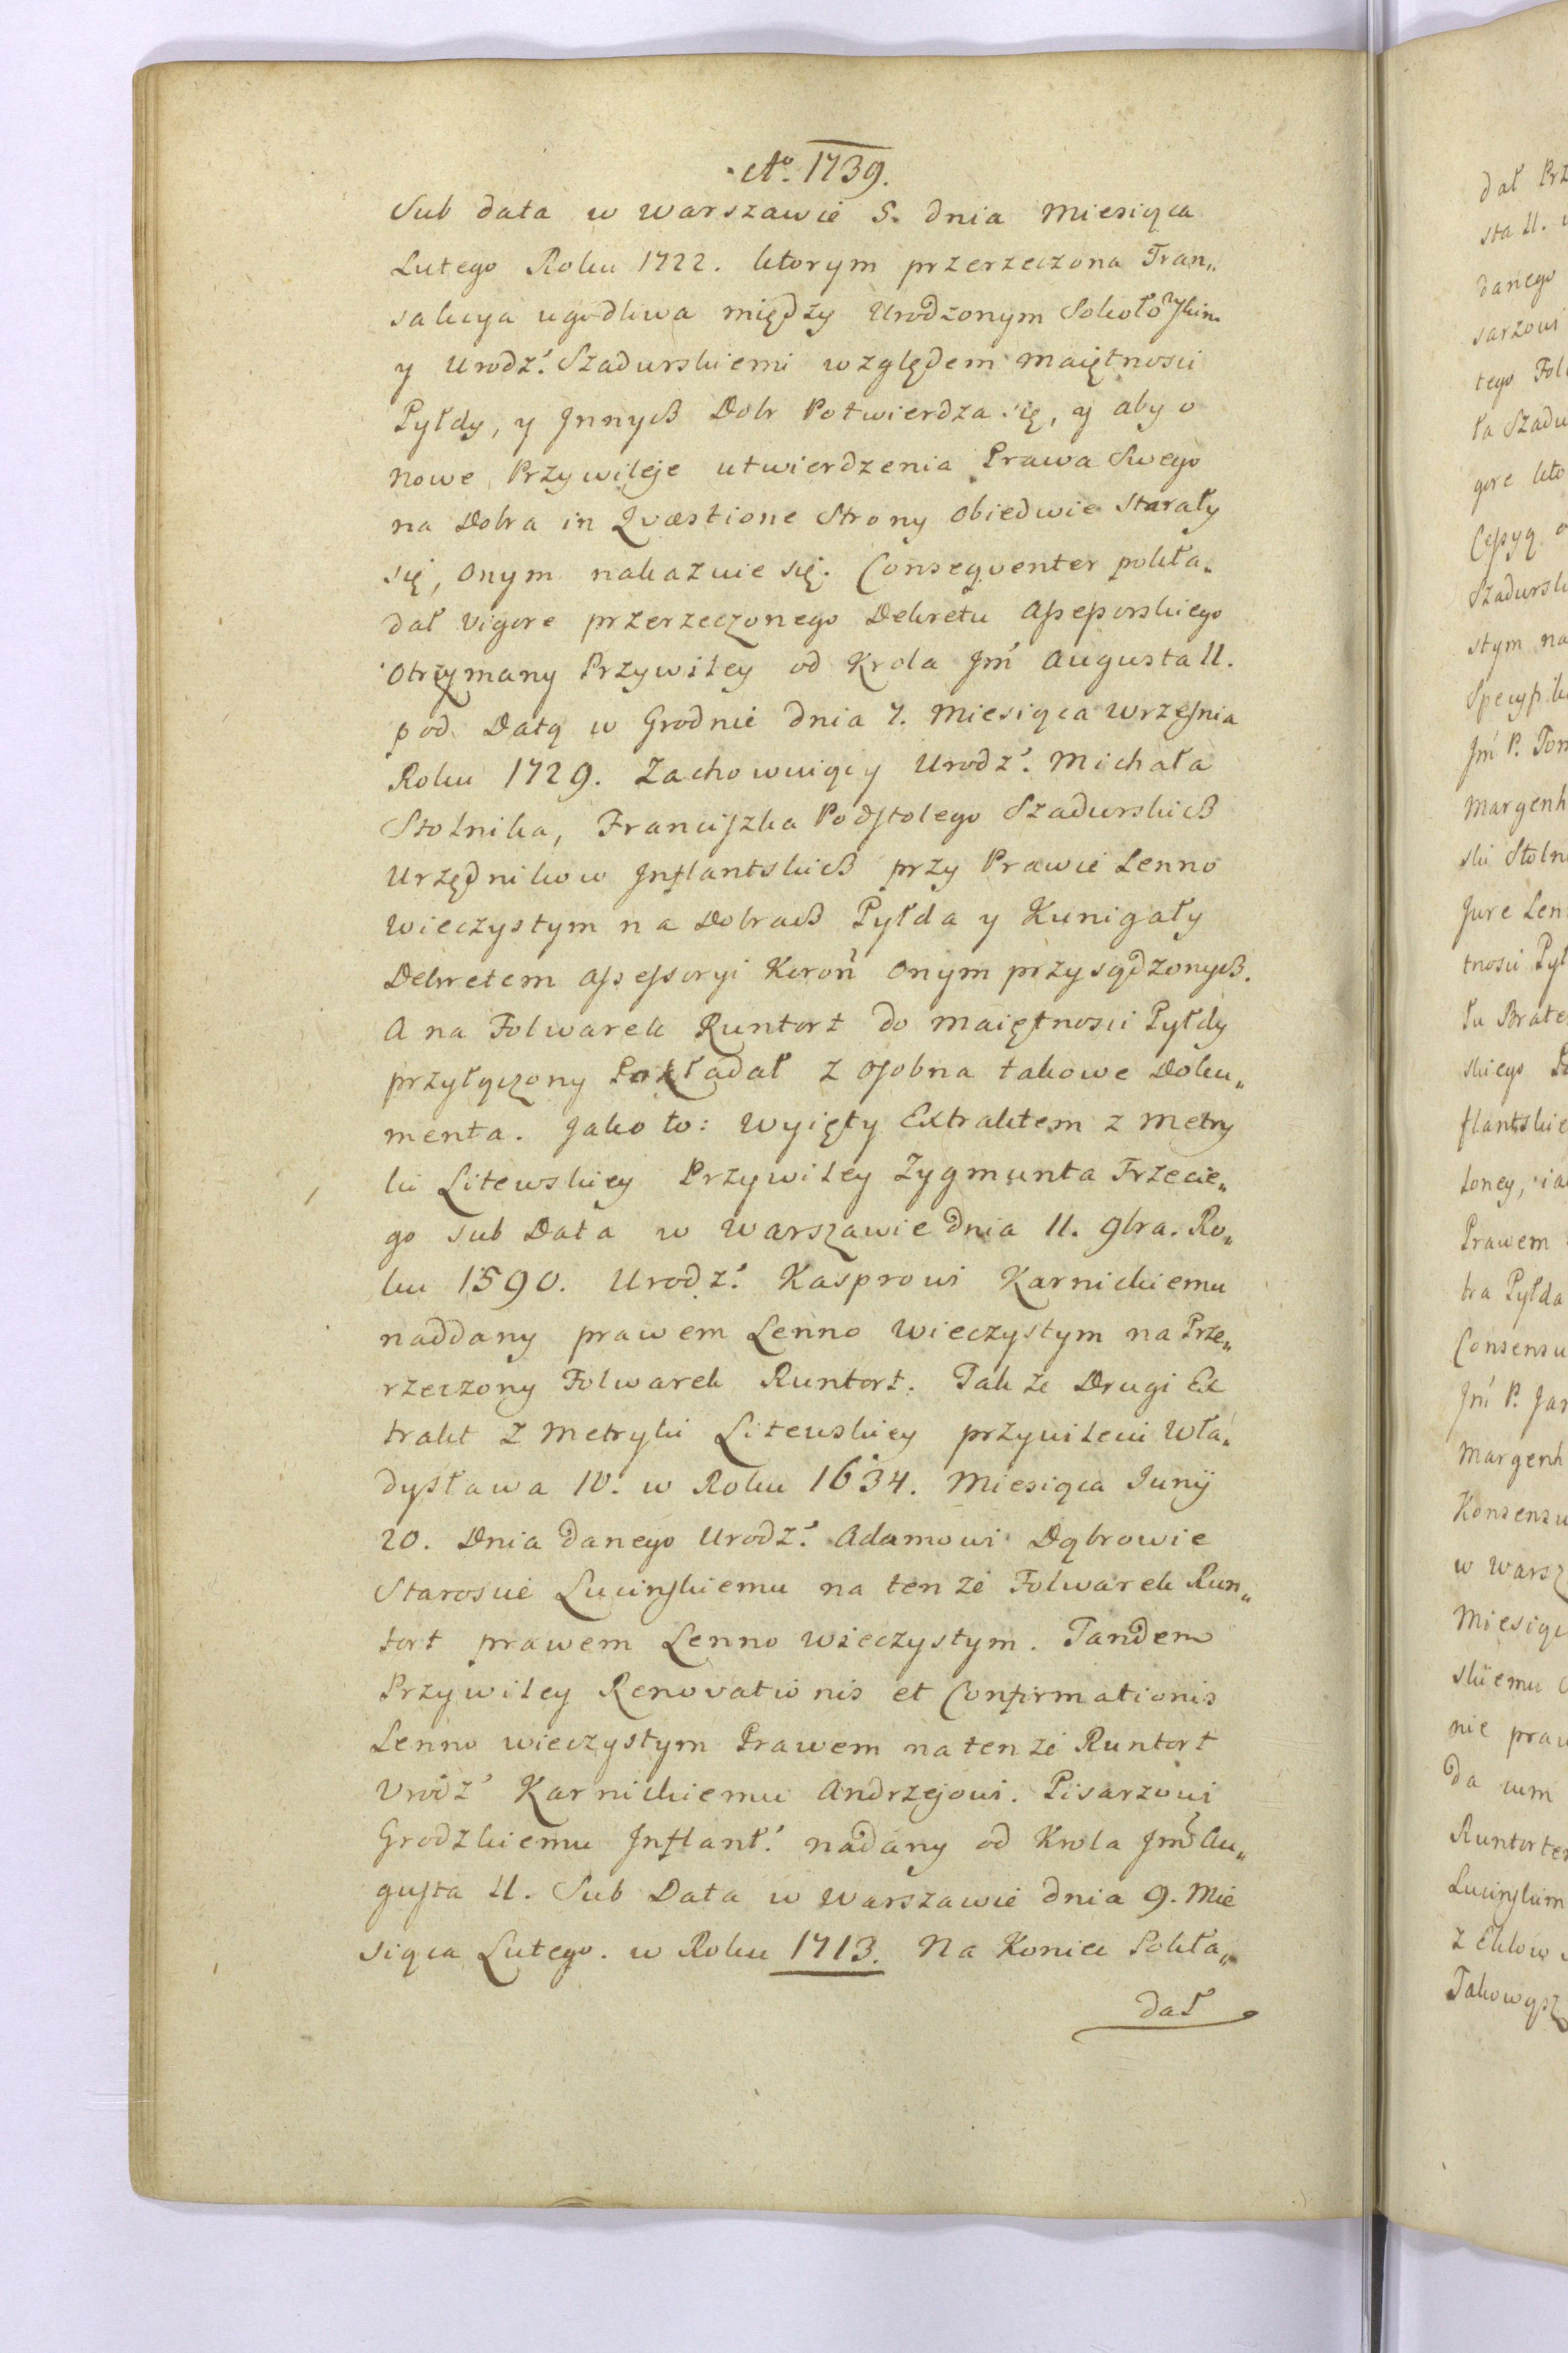 Ao. 1739.
Sub data w Warszawie 5. dnia Miesiąca
Lutego Roku 1722. ktorym przerzeczona Tran„
sakcya ugodliwa między Urodzonym Sokołowskim
y Urodz: Szadurskiemi względem Maiętnosci
Pyłdy, y Jnnych Dobr Potwierdza się, y aby o
nowe Przywileje utwierdzenia Prawa Swego
na Dobra in Qvæstione Strony Obiedwie Starały
się, Onym nakazuie się. Conseqventer pokła„
dał vigore przerzeczonego Dekretu Assessorskiego
Otrzymany Przywiley od Krola Jm Augusta II.
pod Datą w Grodnie dnia 7. Miesiąca Września
Roku 1729. Zachowuiący Urodz: Michała
Stolnika, Franciszka Podstolego Szadurskich
Urzędnikow Jnflantskich przy Prawie Lenno
Wieczystym na Dobrach Pyłda y Kunigały
Dekretem Assessoryi Koroń Onym przysądzonych.
A na Folwarek Runtort do Maiętnosci Pyłdy
przyłączony Pokładał z osobna takowe Doku„
menta. Jako to: Wyięty Extraktem z Metry
ki Litewskiey Przywiley Zygmunta Trzecie„
go sub Data w Warszawie dnia 11. 9bra. Ro„
ku 1590. Urodz: Kasprowi Karnickiemu
naddany prawem Lenno Wieczystym na Prze„
rzeczony Folwarek Runtort. Tak że Drugi Ex
trakt z Metryki Litewskiey przywileiu Wła„
dysława IV. w Roku 1634. Miesiąca Junij
20. Dnia danego Urodz: Adamowi Dąbrowie
Staroscie Lucinskiemu na ten że Folwarek Run„
tort prawem Lenno wieczystym. Tandem
Przywiley Renovationis et Confirmationis
Lenno wieczystym Prawem na ten że Runtort
Urodz Karnickiemu Andrzejowi. Pisarzowi
Grodzkiemu Jnflant: nadany od Krola Jmci Au„
gusta II. Sub Data w Warszawie dnia 9. Mie
siąca Lutego. w Roku 1713. Na Koniec Pokła„
dał
dał Prz
sta II.
danego
sarzowi
tego Fol
ła Szadu
gore kto
Cessyą
Szadursk
stym na
Specyfik
Jm P. Tom
Margenh
ski Stoln
Jure Len
tnosci Pył
łu Brate
skiego
flantskie
loney, ia
Prawem
tra Pyłda
Consensu
Jm P. Jan
Margenh
Konsensu
w Warsz
Miesiąc
skiemu
nie praw
da cum
Runtorte
Lucinskim
z Eklow
Takowąsz